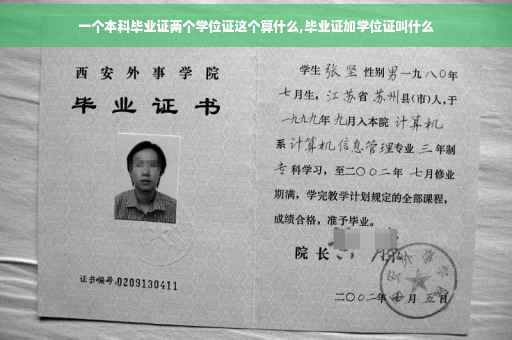 一个本科毕业证两个学位证这个算什么,毕业证加学位证叫什么
西安外事学院
毕业证书
证书编号:0209130411
学生张坚性别男一九八〇年
七月生,江苏省苏州县(市)人,于
一九九九年九月入本院计算机
系计算机信息管理专业三年制
专科学习,至二〇〇二年七月修业
期满,学完教学计划规定的全部课程,
成绩合格,准予毕业。
院长
二〇〇二年七月五日